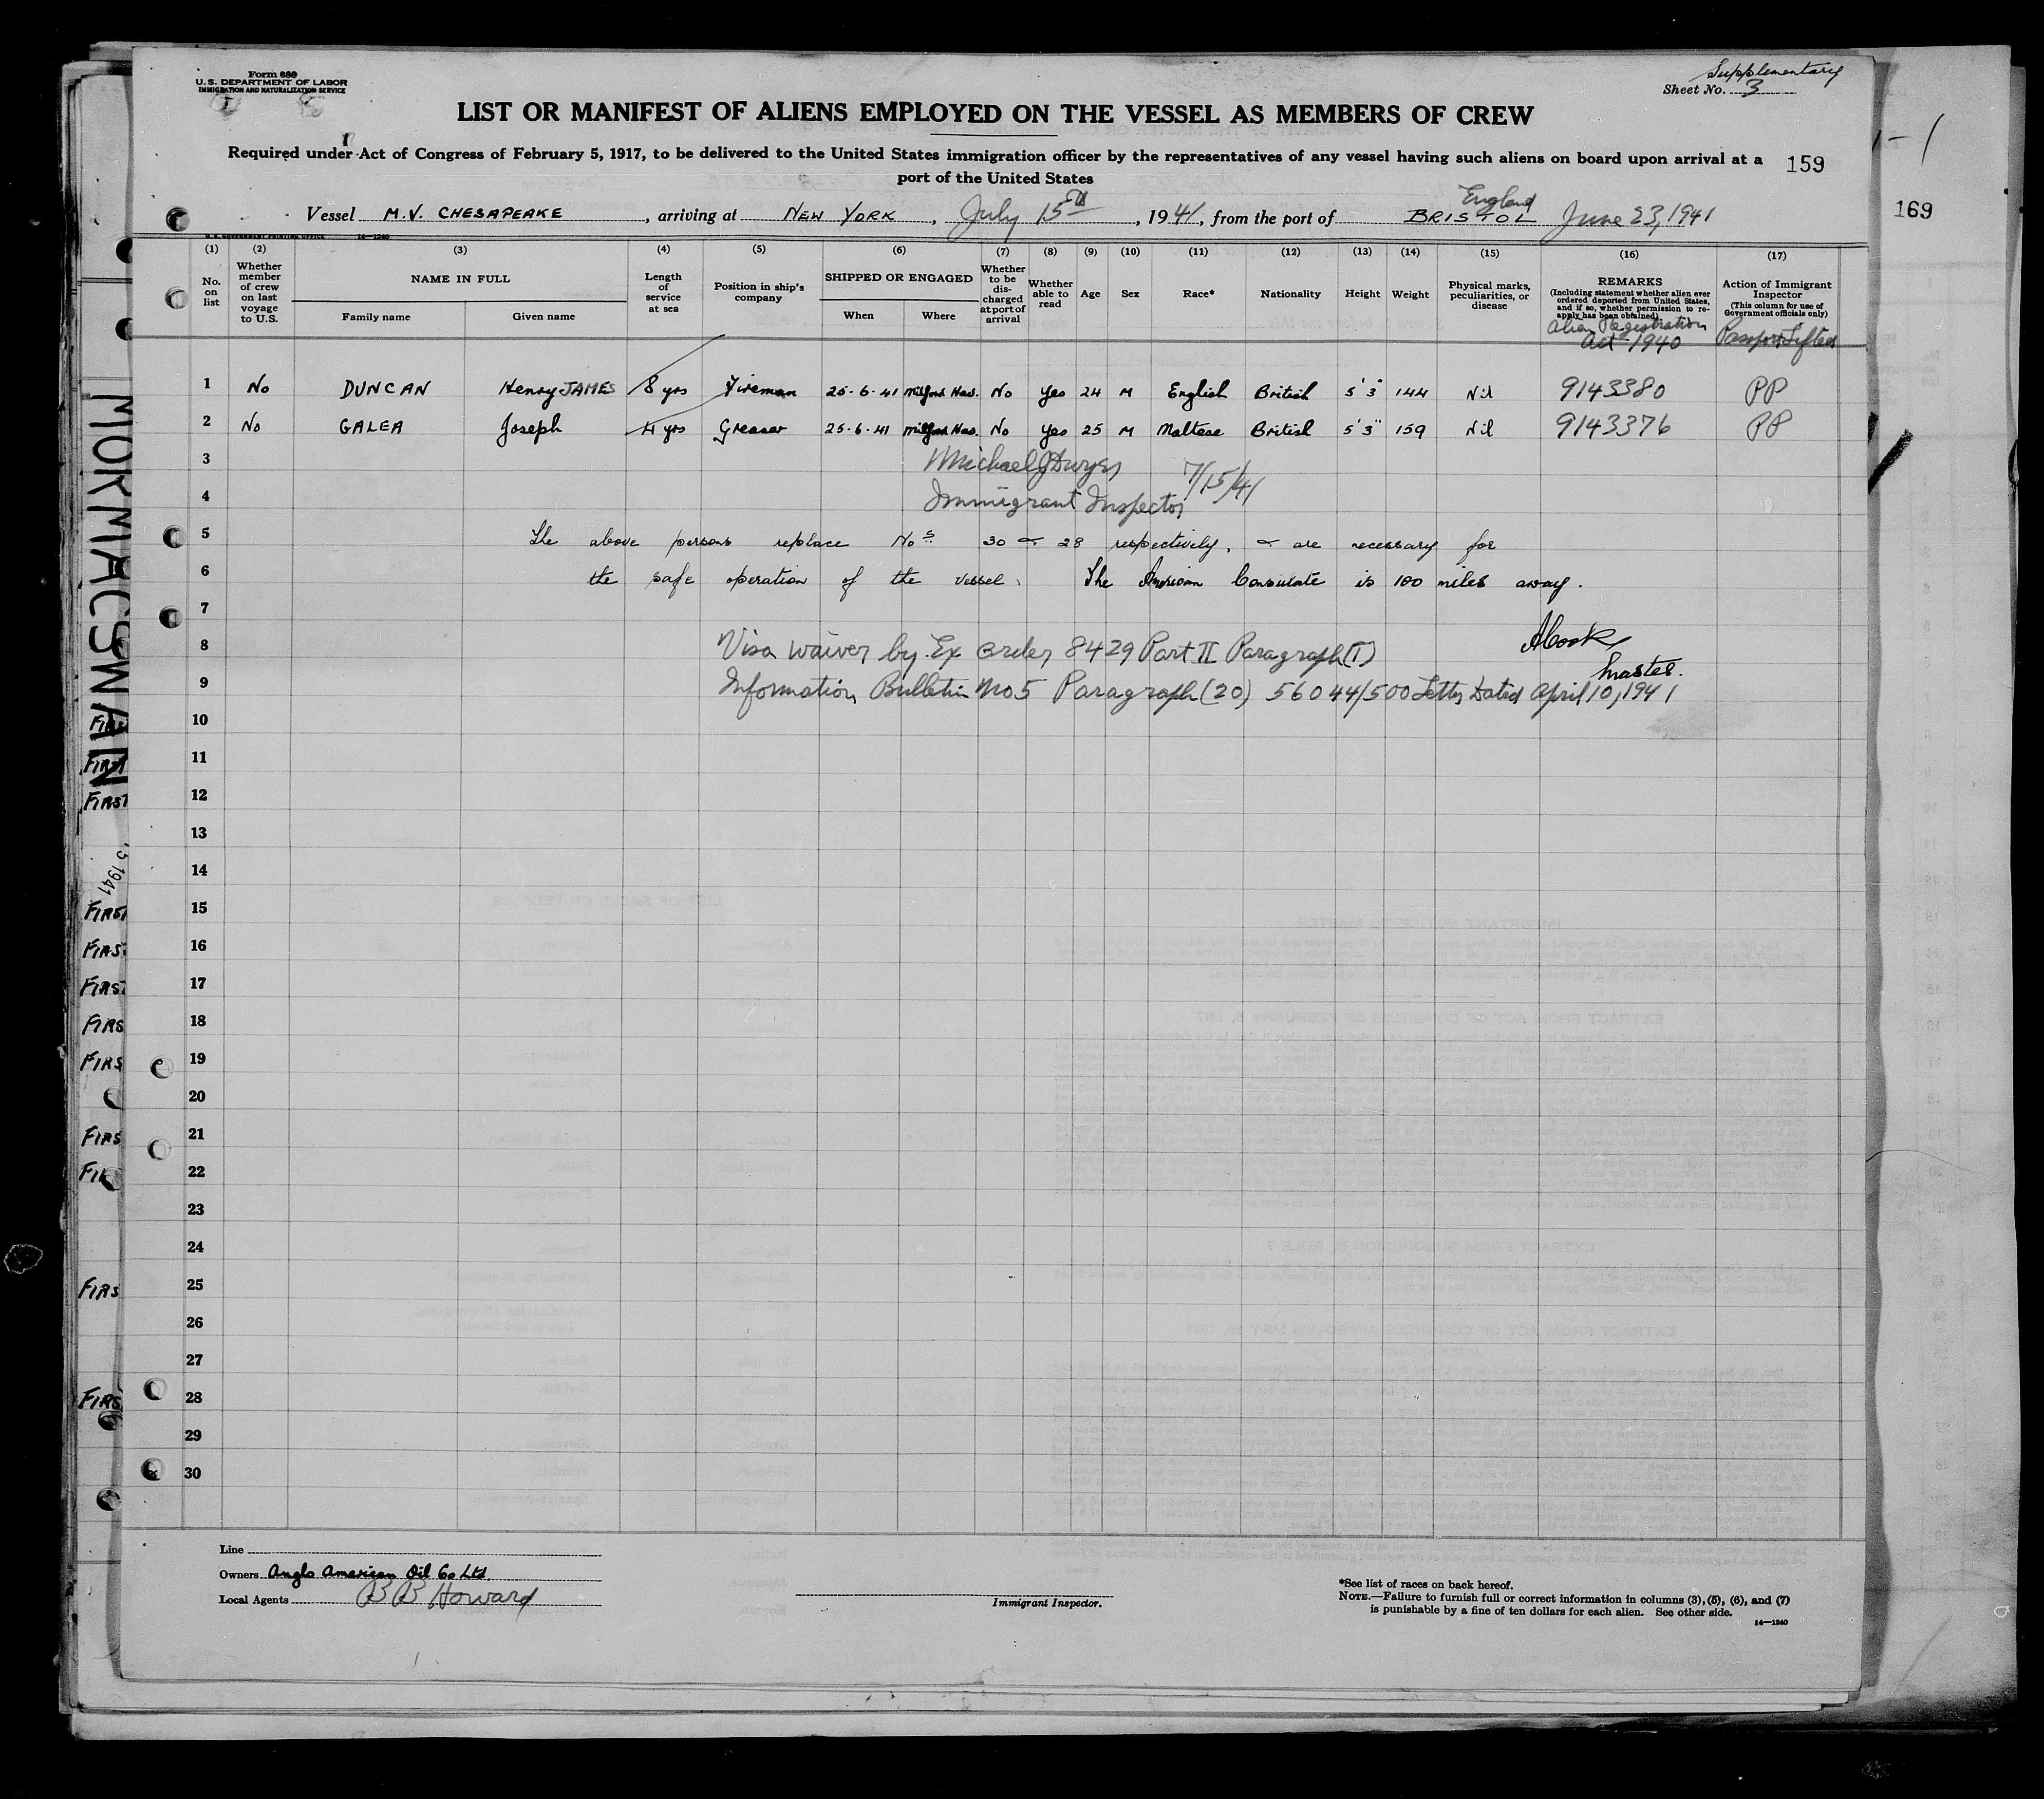 Form 680
U.S. DEPARTMENT OF LABOR
IMMIGRATION AND NATURALIZATION SERVICE
Supplementary
Sheet No. 3
LIST OR MANIFEST OF ALIENS EMPLOYED ON THE VESSEL AS MEMBERS OF CREW
Required under Act of Congress of February 5, 1917, to be delivered to the United States immigration officer by the representatives of any vessel having such aliens on board upon arrival at a
port of the United States
159
169
Vessel M.V. CHESAPEAKE, arriving at NEW YORK, July 15th, 1941, from the port of BRISTOL England June 23, 1941
U.S. GOVERNMENT PRINTING OFFICE 14—1240
(1) (2) (3) (4) (5) (6) (7) (8) (9) (10) (11) (12) (13) (14) (15) (16) (17)
No. on list
Whether member of crew on last voyage to U.S.
NAME IN FULL
Family name
Given name
Length of service at sea
Position in ship's company
SHIPPED OR ENGAGED
When
Where
Whether to be discharged at port of arrival
Whether able to read
Age
Sex
Race*
Nationality
Height
Weight
Physical marks, peculiarities, or disease
REMARKS
(Including statement whether alien ever ordered deported from United States, and if so, whether permission to re-apply has been obtained)
Alien Registration
Act 1940
Action of Immigrant Inspector
(This column for use of Government officials only)
Passport Lifted
1 No DUNCAN Henry JAMES 8 yrs Fireman 25-6-41 Milford Hav. No Yes 24 M English British 5'3" 144 Nil 9143380 PP
2 No GALEA Joseph 4 yrs Greaser 25-6-41 Milford Hav. No Yes 25 M Maltese British 5'3" 159 Nil 9143376 PP
3 Michael J Dwyer
4 Immigrant Inspector 7/15/41
5 The above persons replace Nos 30 & 28 respectively, & are necessary for
6 the safe operation of the vessel. The American Consulate is 100 miles away.
7
8 Visa waiver by Ex Order 8429 Part II Paragraph (1) A Cook
Master.
9 Information Bulletin No 5 Paragraph (20) 56044/500 Letter Dated April 10, 1941
10
11
12
13
14
15
16
17
18
19
20
21
22
23
24
25
26
27
28
29
30
MORMACSWAN
FIRST
FIRST
1941
FIRST
FIRS
FIRS
FIRS
FIRS
FIRS
FIRS
FIRS
Line
Owners Anglo American Oil Co Ltd.
Local Agents B B Howard
Immigrant Inspector.
*See list of races on back hereof.
NOTE.—Failure to furnish full or correct information in columns (3), (5), (6), and (7)
is punishable by a fine of ten dollars for each alien. See other side.
14—1240